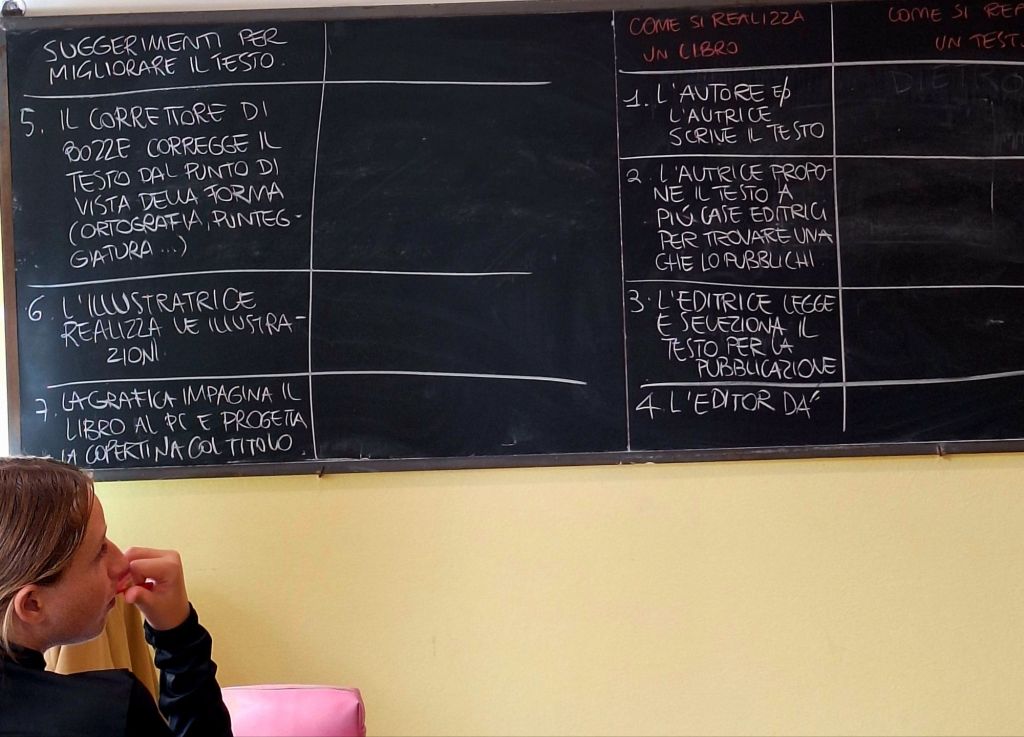 SUGGERIMENTI PER
MIGLIORARE IL TESTO.
5. IL CORRETTORE DI
BOZZE CORREGGE IL
TESTO DAL PUNTO DI
VISTA DELLA FORMA
(ORTOGRAFIA, PUNTEG-
GIATURA ...)
6. L'ILLUSTRATRICE
REALIZZA LE ILLUSTRA-
ZIONI
7. LA GRAFICA IMPAGINA IL
LIBRO AL PC E PROGETTA
LA COPERTINA COL TITOLO.
COME SI REALIZZA
UN LIBRO
1. L'AUTORE E/O
L'AUTRICE
SCRIVE IL TESTO
2. L'AUTRICE PROPO-
NE IL TESTO A
PIÚ CASE EDITRICI
PER TROVARE UNA
CHE LO PUBBLICHI
3. L'EDITRICE LEGGE
E SELEZIONA IL
TESTO PER LA
PUBBLICAZIONE
4. L'EDITOR DA'
COME SI REA
UN TEST
DIETRO